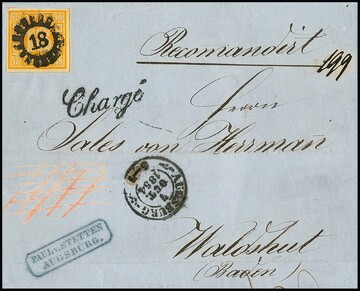 18
Recomandirt
199
Chargé
Herrn
Sales von Herrmañ
AUGSBURG
1854
PAUL v. STETTEN
AUGSBURG.
Waldshut
(Baden)